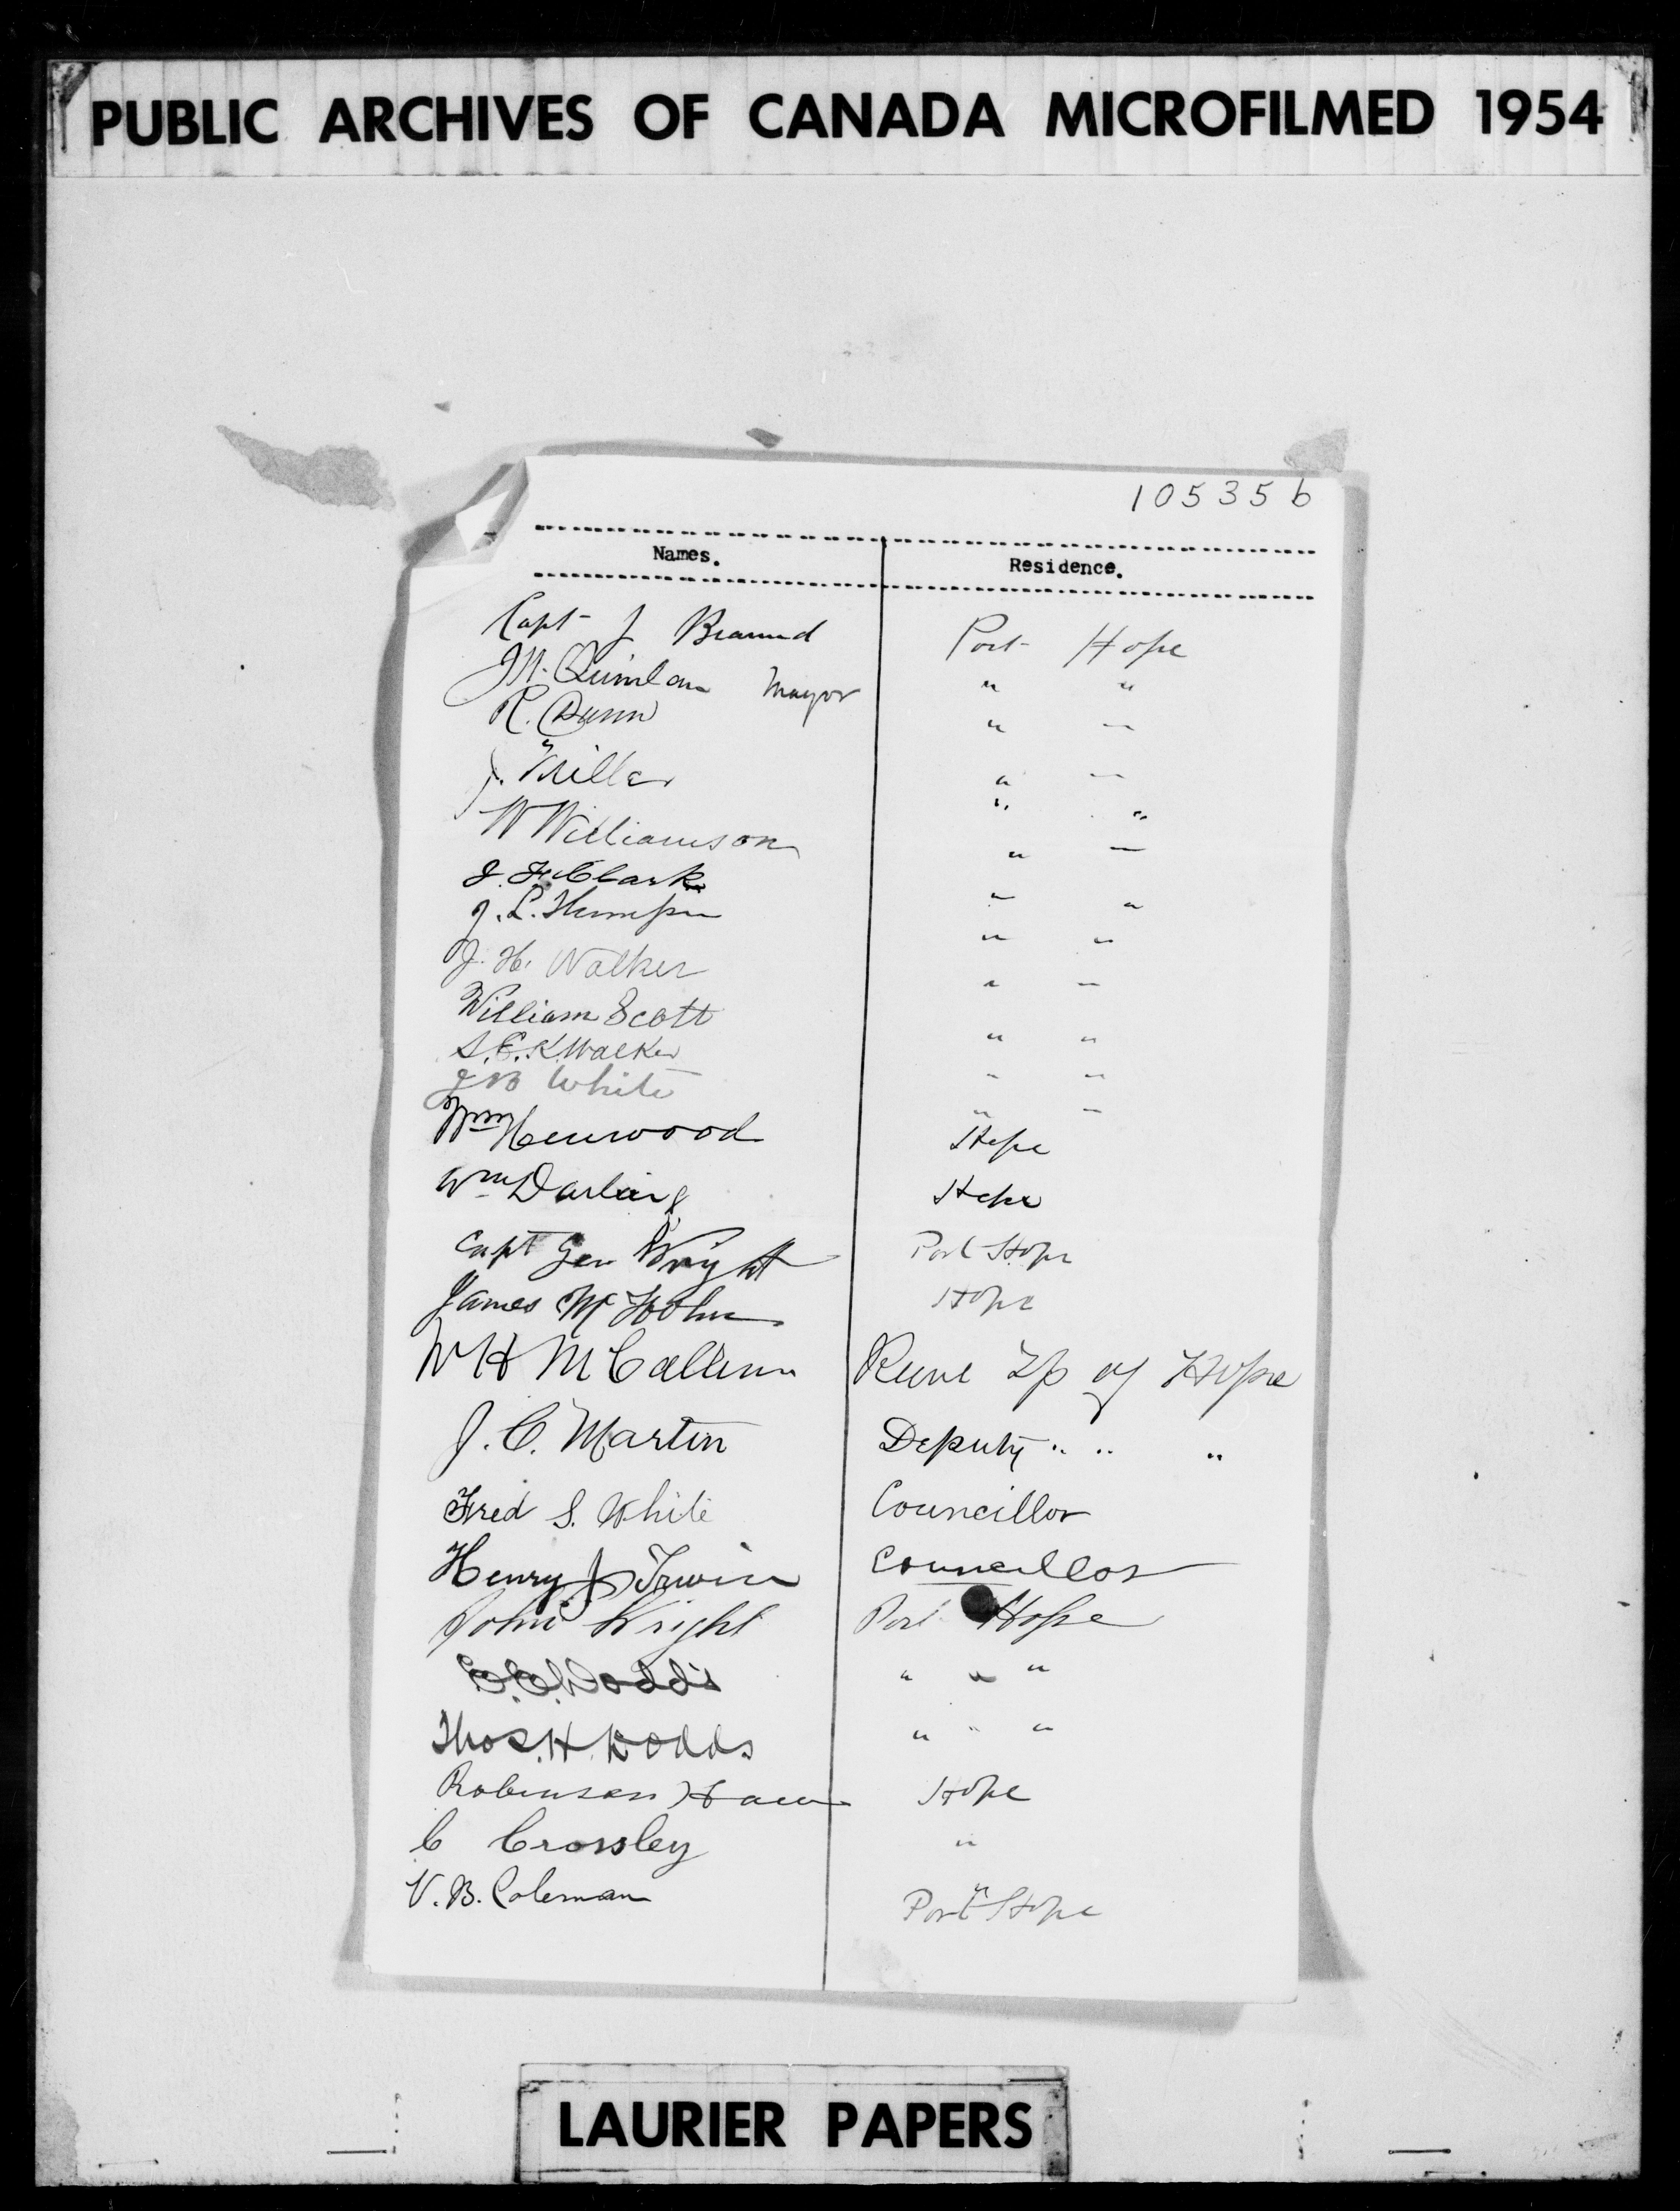 PUBLIC ARCHIVES OF CANADA MICROFILMED 1954
105356
Names. Residence.
Capt J Port Hope
J.M. Quinlan Mayor " "
R. Dunn " "
J. Miller " "
W Williamson " "
J. F. Clark " "
J. L. " "
J. H. Walker " "
William Scott " "
S. E. K. Walker " "
J B White " "
Wm Henwood Hope
Wm Darling Hope
Capt Geo Wright Port Hope
James Mc Hope
W H McCallum Reeve Tp of Hope
J. C. Martin Deputy " " "
Fred S. White Councillor
Henry J Irwin Councillor
John Wright Port Hope
Dodds " " "
Thos. H. Dodds " " "
Robinson Hope
C Crossley "
V. B. Coleman Port Hope
LAURIER PAPERS